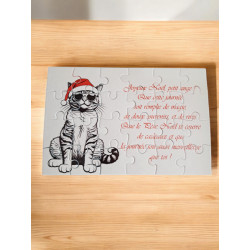 Joyeux Noël petit ange
Que cette journée
soit remplie de magie
de doux moments et de rires
Que le Père Noël te couvre
de cadeaux et que
la journée soit aussi merveilleuse
que toi !